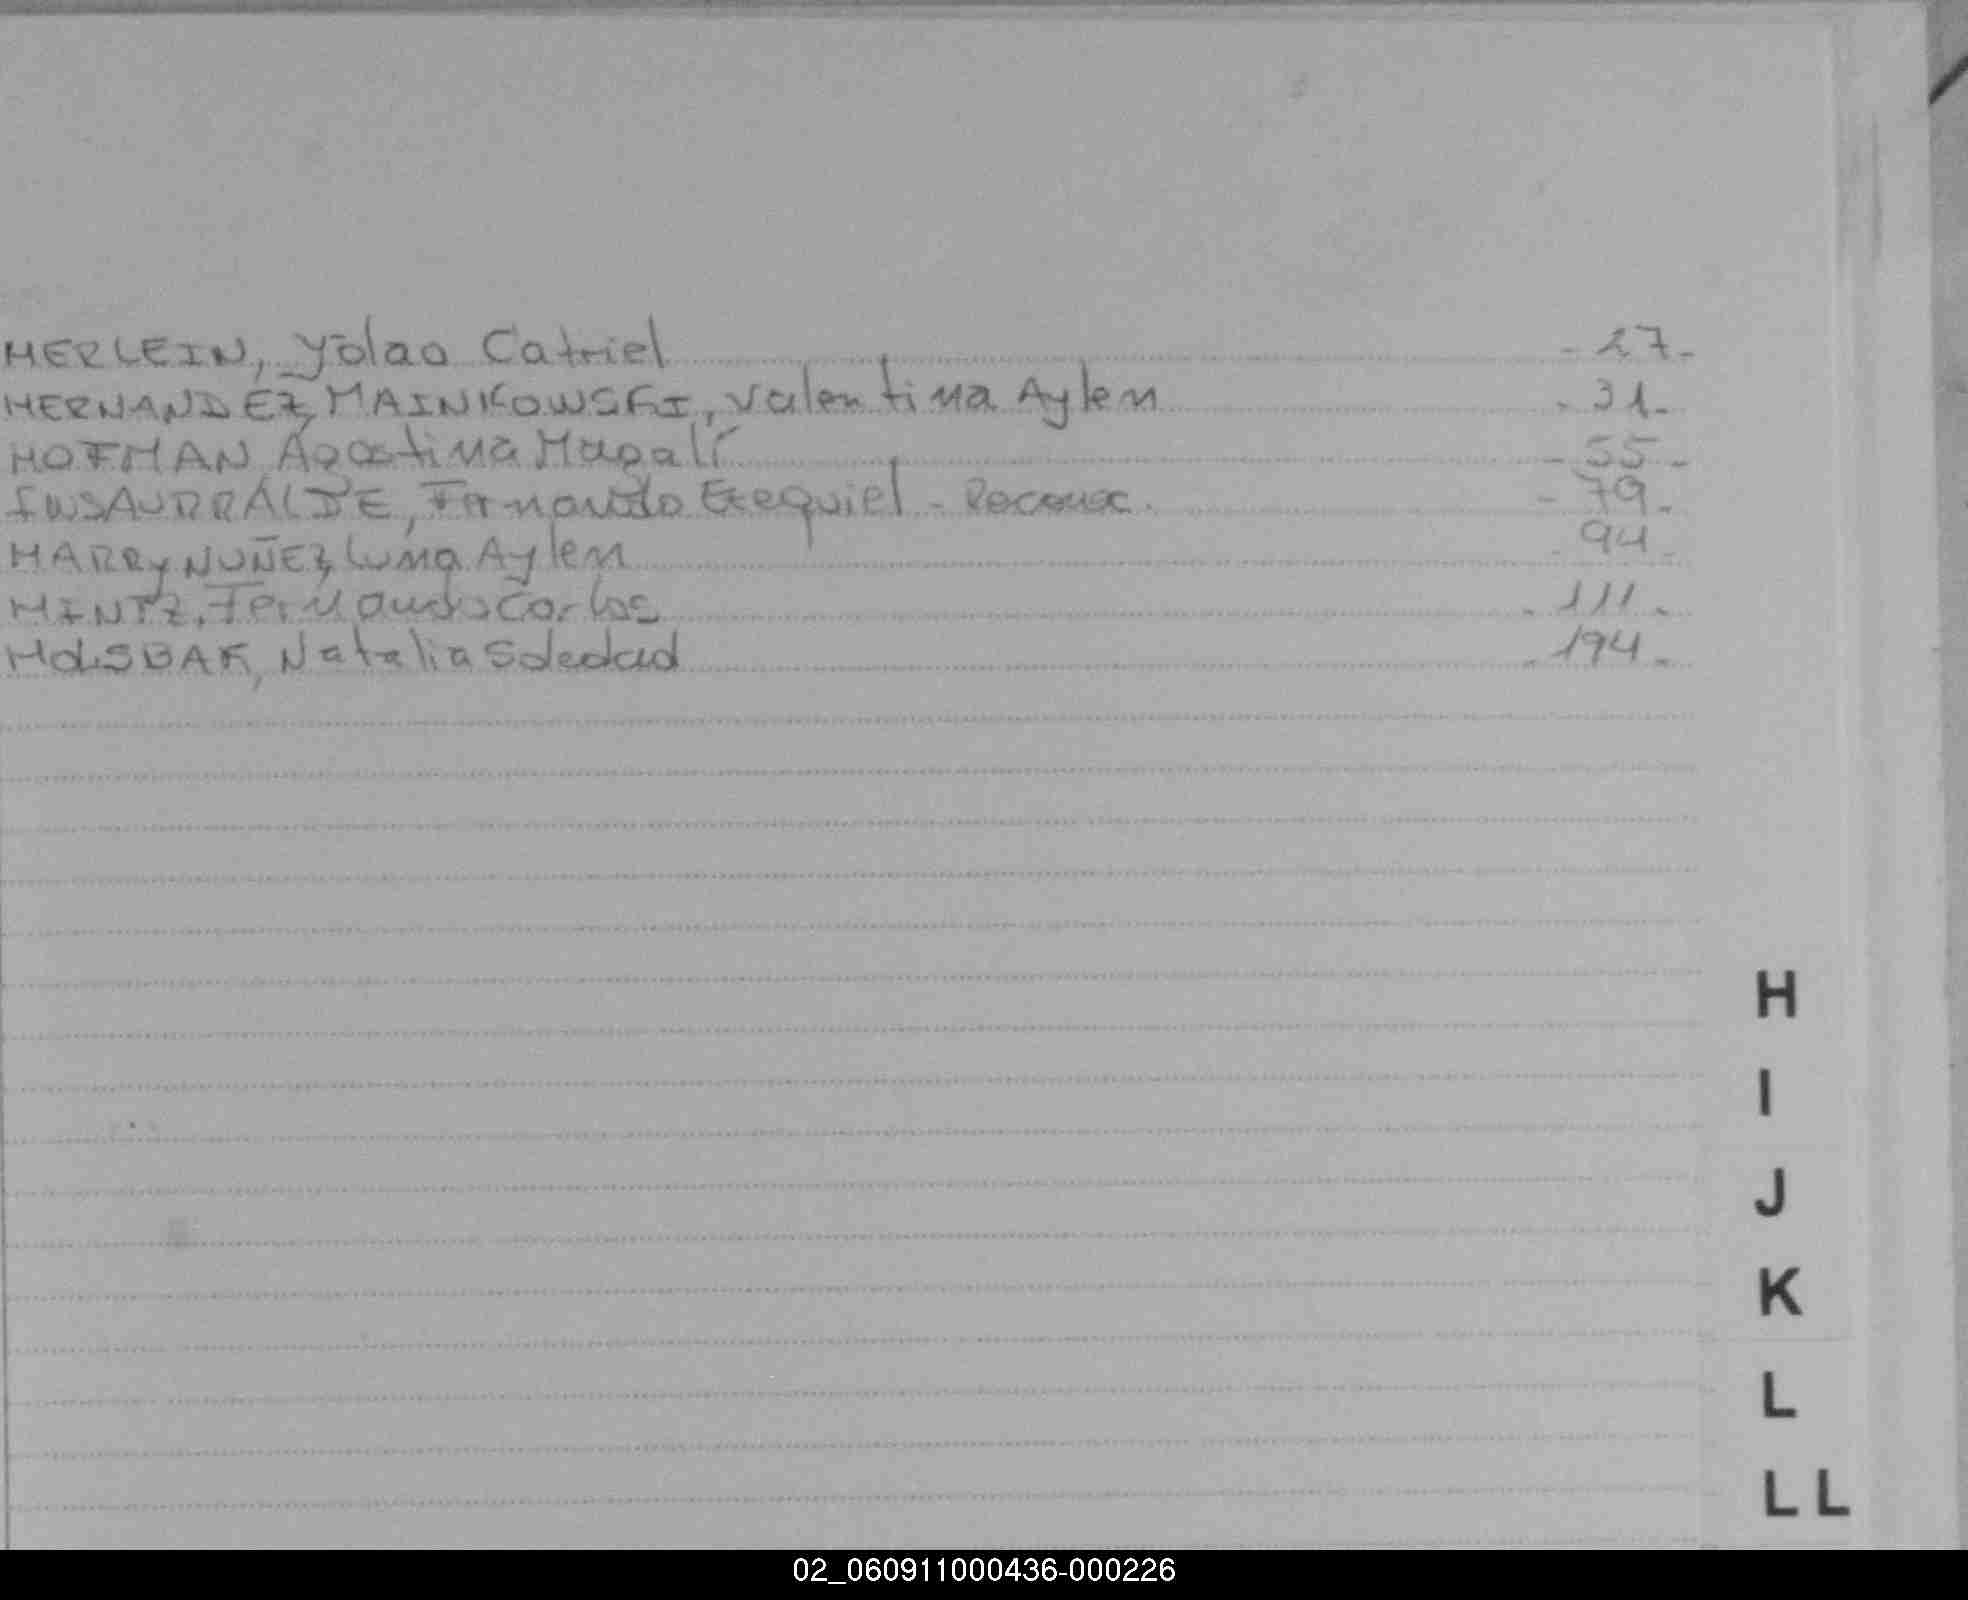 HERLEIN, Yolao Catriel - 27 -
HERNANDEZ MAINKOWSKI, Valentina Aylen - 31 -
HOFMAN Agostina Magalí - 55 -
INSAURRALDE, Fernando Ezequiel - Reconoc. - 79 -
HARRY NUÑEZ Luna Aylen - 94 -
HINTZ, Fernando Carlos - 111 -
HOLSBAK, Natalia Soledad - 194 -
H
I
J
K
L
LL
02_060911000436-000226